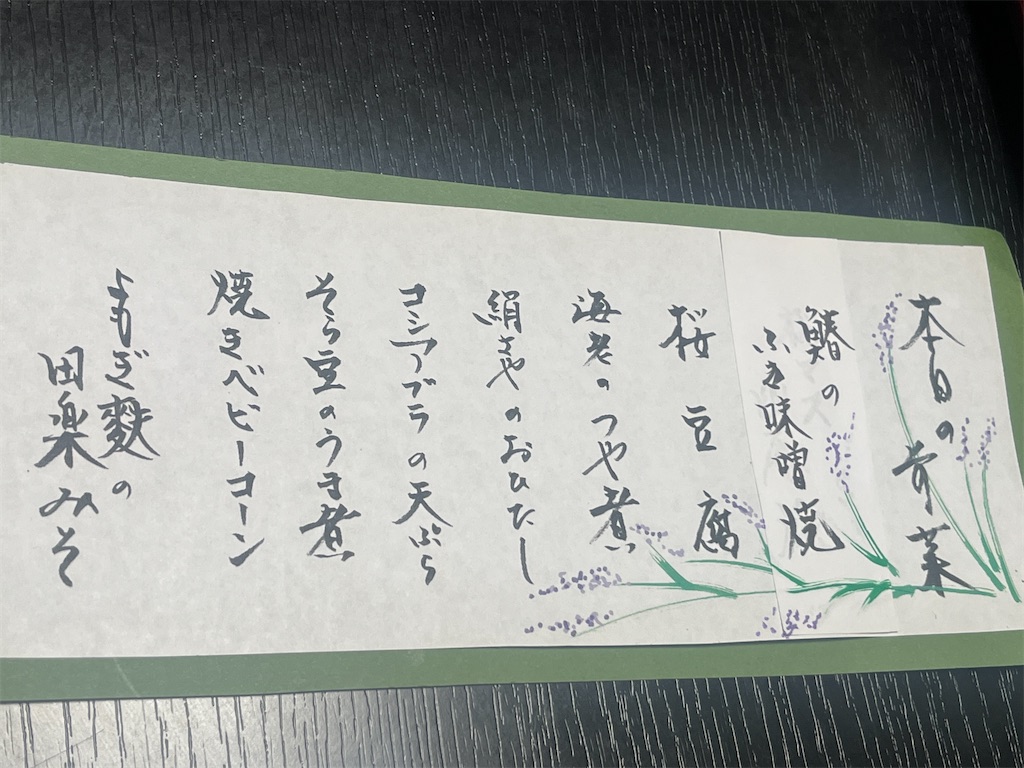 本日の前菜
鰆の
ふき味噌焼
桜豆腐
海老のつや煮
絹さやのおひたし
コシアブラの天ぷら
そら豆のうま煮
焼きベビーコーン
よもぎ麩の
田楽みそ